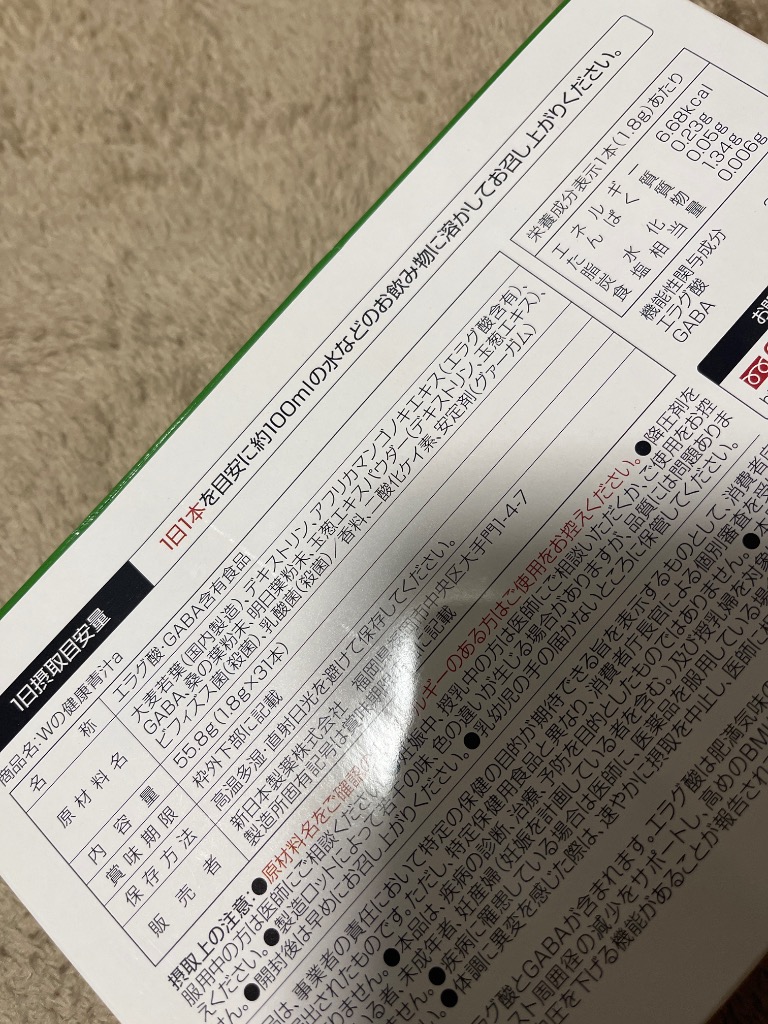 1日摂取目安量
1日1本を目安に約100mlの水などのお飲み物に溶かしてお召し上がりください。
商品名:Wの健康青汁a
名称 エラグ酸・GABA含有食品
原材料名 大麦若葉(国内製造)、デキストリン、アフリカマンゴノキエキス(エラグ酸含有)、
GABA、桑の葉粉末、明日葉粉末、玉葱エキスパウダー(デキストリン、玉葱エキス)、
ビフィズス菌(殺菌)、乳酸菌(殺菌)/香料、二酸化ケイ素、安定剤(グァーガム)
内容量 55.8g(1.8g×31本)
賞味期限 枠外下部に記載
保存方法 高温多湿・直射日光を避けて保存してください。
販売者 新日本製薬株式会社 福岡県 中央区大手門1-4-7
製造所固有記号は賞味期限 記載
栄養成分表示1本(1.8g)あたり
エネルギー 6.68kcal
たんぱく質 0.23g
脂質 0.05g
炭水化物 1.34g
食塩相当量 0.006g
機能性関与成分
エラグ酸
GABA
摂取上の注意:●原材料名をご確認 ルギーのある方はご使用をお控えください。●降圧剤を
服用中の方は医師にご相談くださ 妊娠中、授乳中の方は医師にご相談いただくか、ご使用をお控
えください。●製造ロットによって の味、色の違いが生じる場合がありますが、品質には問題ありま
せん。●開封後は早めにお召し上がりください。●乳幼児の手の届かないところに保管してください。
は、事業者の責任において特定の保健の目的が期待できる旨を表示するものとして、消費者庁
出されたものです。ただし、特定保健用食品と異なり、消費者庁長官による個別審査を受
りません。●本品は、疾病の診断、治療、予防を目的としたものではありません。●本
る者、未成年者、妊産婦(妊娠を計画している者を含む。)及び授乳婦を対象
せん。●疾病に罹患している場合は医師に、医薬品を服用している場
●体調に異変を感じた際は、速やかに摂取を中止し、医師に相
ラグ酸とGABAが含まれます。エラグ酸は肥満気味の
スト周囲径の減少をサポートし、高めのBM
圧を下げる機能があることが報告され